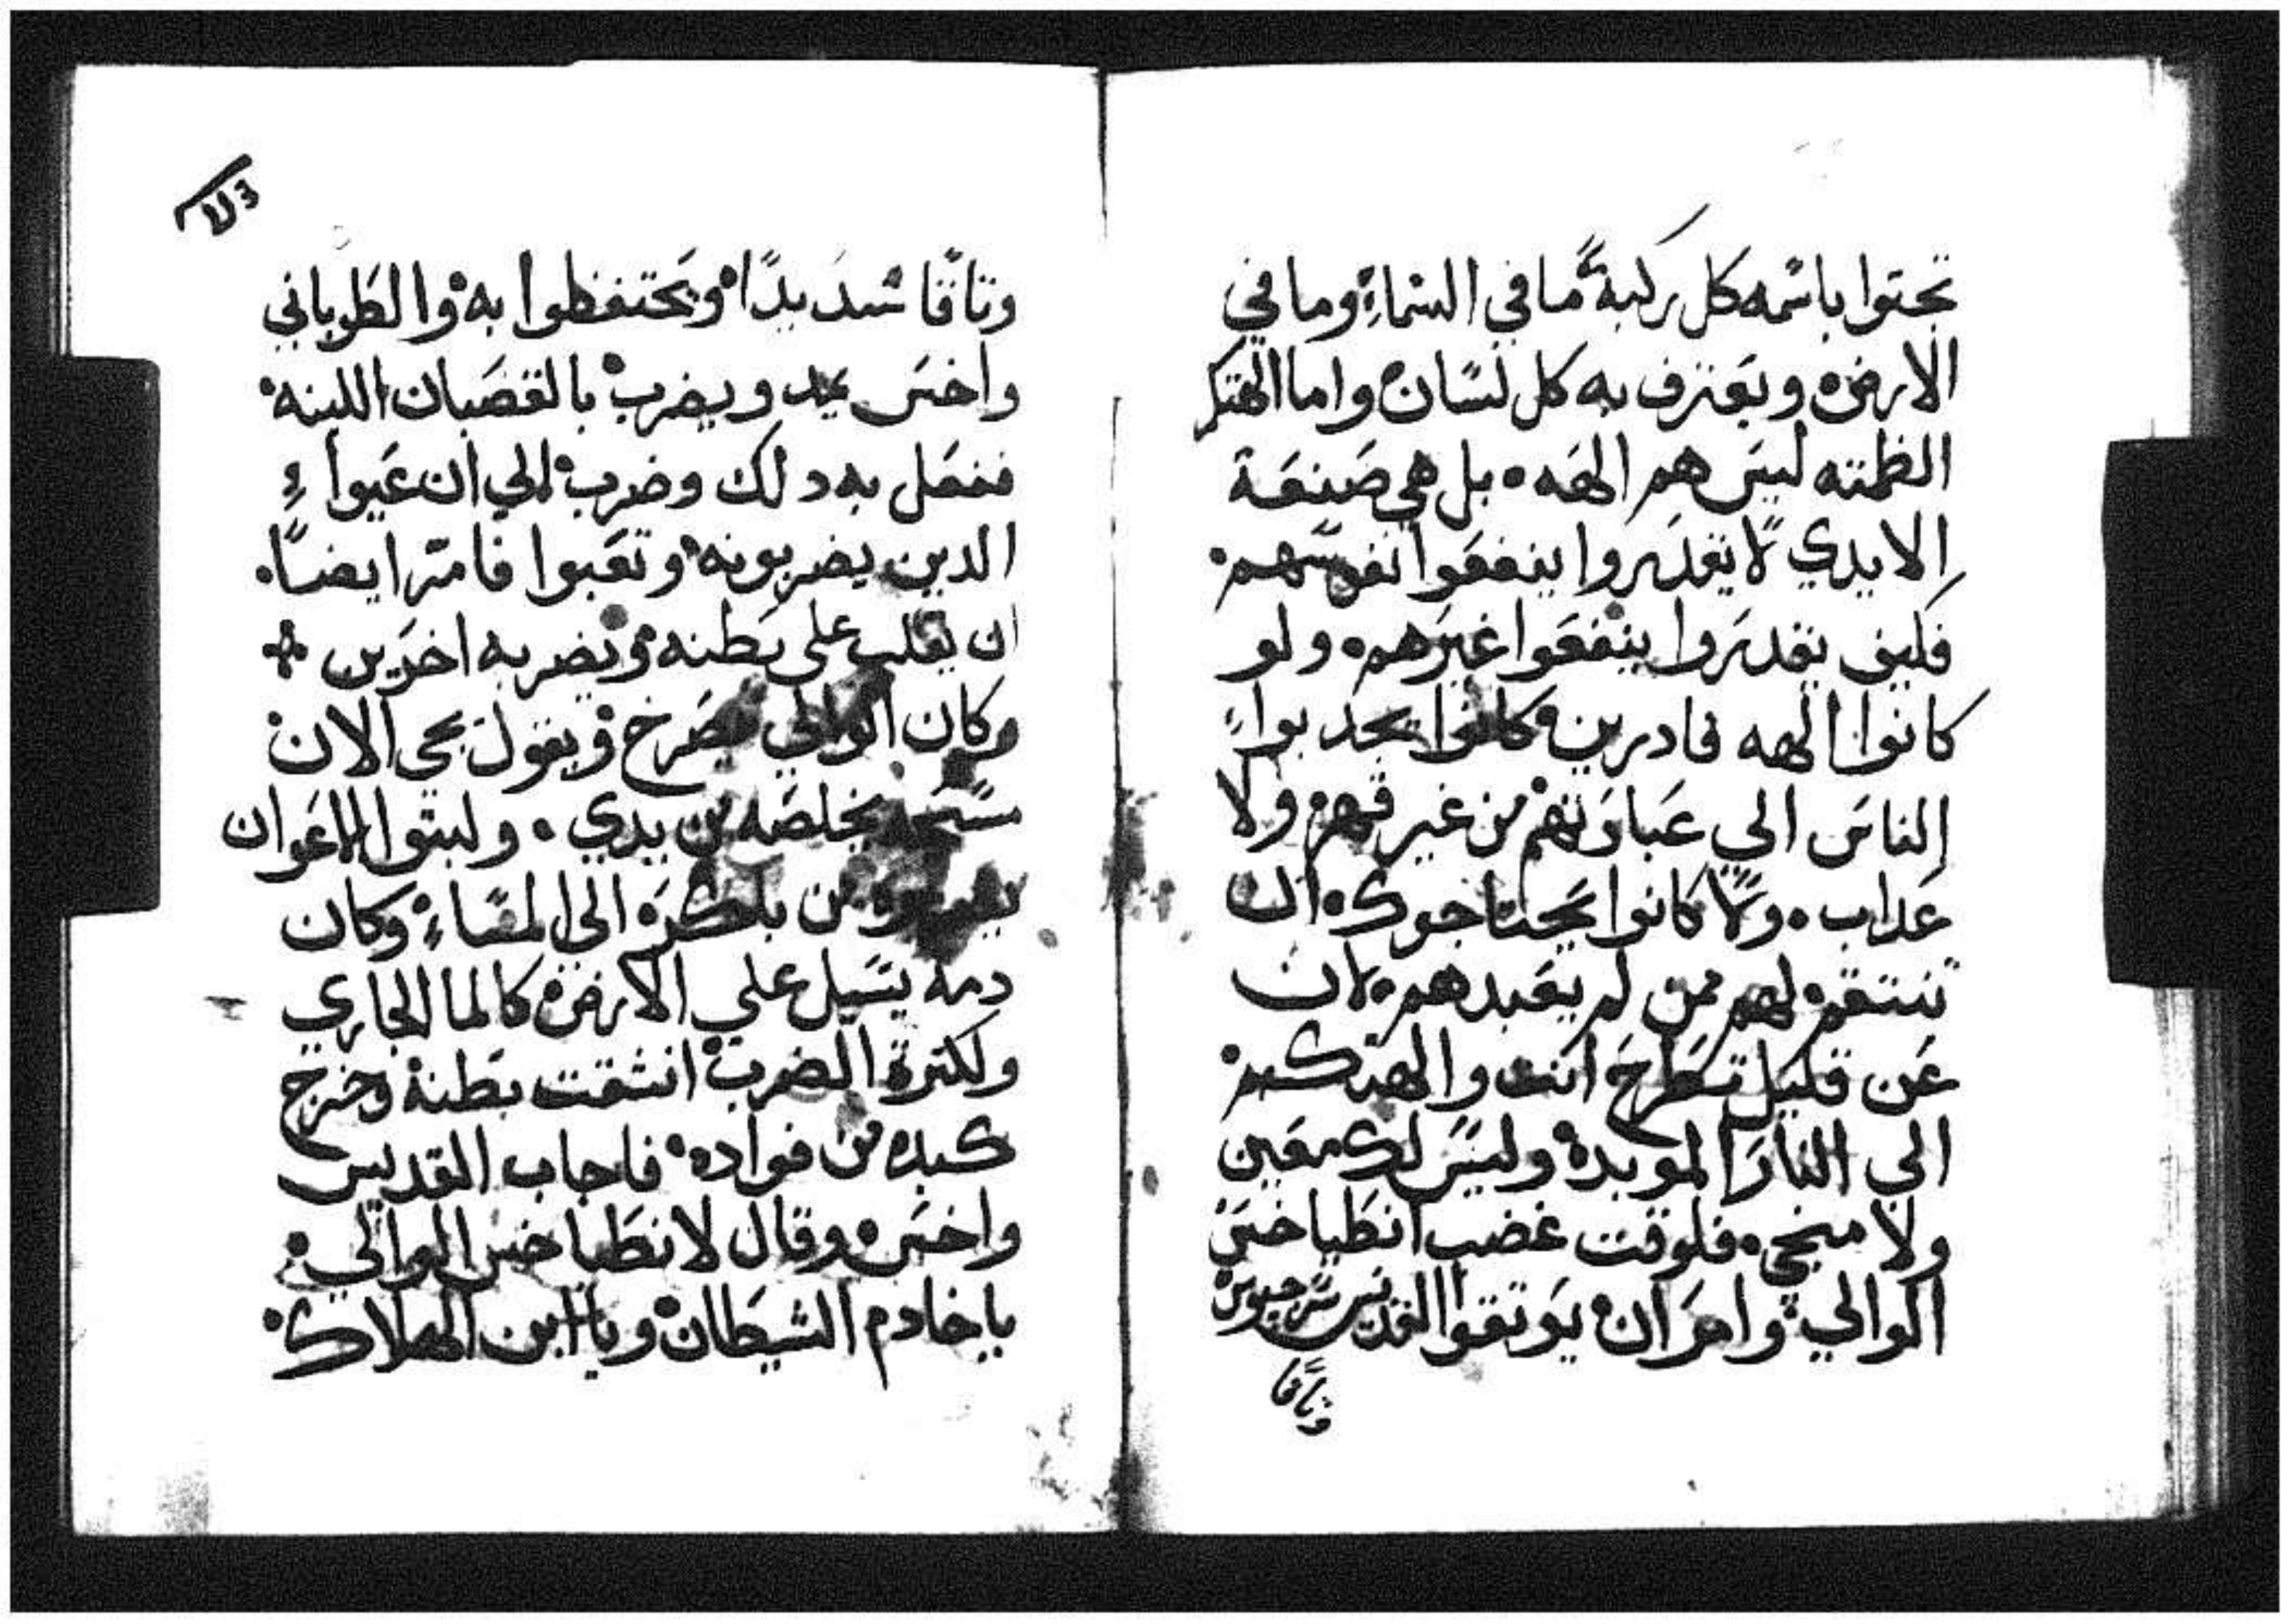 تجتوا باسمه كل ركبة ما في السماء وما في
الارض ويعترف به كل لسان واما الهتكم
الطمته ليس هم الهه بل هي صنعة
الايدي لا يقدروا ينفعوا نفوسهم
فكيف يقدروا ينفعوا غيرهم ولو
كانوا الهه قادرين كانوا يجدبوا
الناس الي عبادتهم من غير قهر ولا
عداب ولا كانوا يحتاجوك ان
تنتقم لهم ممن لم يعبدهم لان
عن قليل تطرح انت والهتكم
الي النار الموبده وليس لك معين
ولا منجي فلوقت غضب انطياخس
الوالي وامر ان يوتقوا القديس سرجيوس
وتاقا
وتاقا شديدا ويحتفظوا به والطوباني
واخس يمد ويضرب بالقضبان اللينه
ففعل به دلك وضرب الي ان عيوا
الدين يضربونه وتعبوا فامر ايضا
ان يقلب علي بطنه ويضربه اخرين
وكان الوالي يصرخ ويقول يجي الان
يخلصه من يدي ولبتوا الاعوان
من باكره الي المساء وكان
دمه يسيل علي الارض كالما الجاري
ولكترة الضرب انشقت بطنه وخرج
كبده من فواده فاجاب القديس
واخس وقال لانطياخس الوالي
ياخادم الشيطان ويا ابن الهلاك